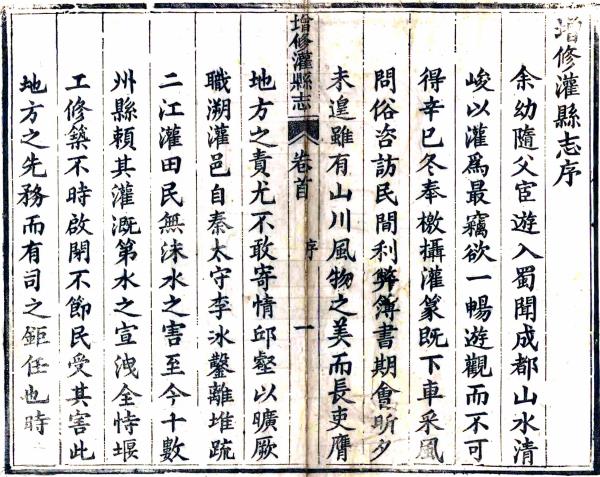 增修灌縣志序
余幼隨父宦遊入蜀聞成都山水清
峻以灌爲最竊欲一暢遊觀而不可
得辛巳冬奉檄攝灌篆既下車采風
問俗咨訪民間利弊簿書期會昕夕
未遑雖有山川風物之美而長吏膺
增修灌縣志
卷首
序
一
地方之責尤不敢寄情邱壑以曠厥
職溯灌邑自秦太守李冰鑿離堆疏
二江灌田民無沬水之害至今十數
州縣賴其灌溉第水之宣洩全恃堰
工修築不時啟閉不節民受其害此
地方之先務而有司之鉅任也時